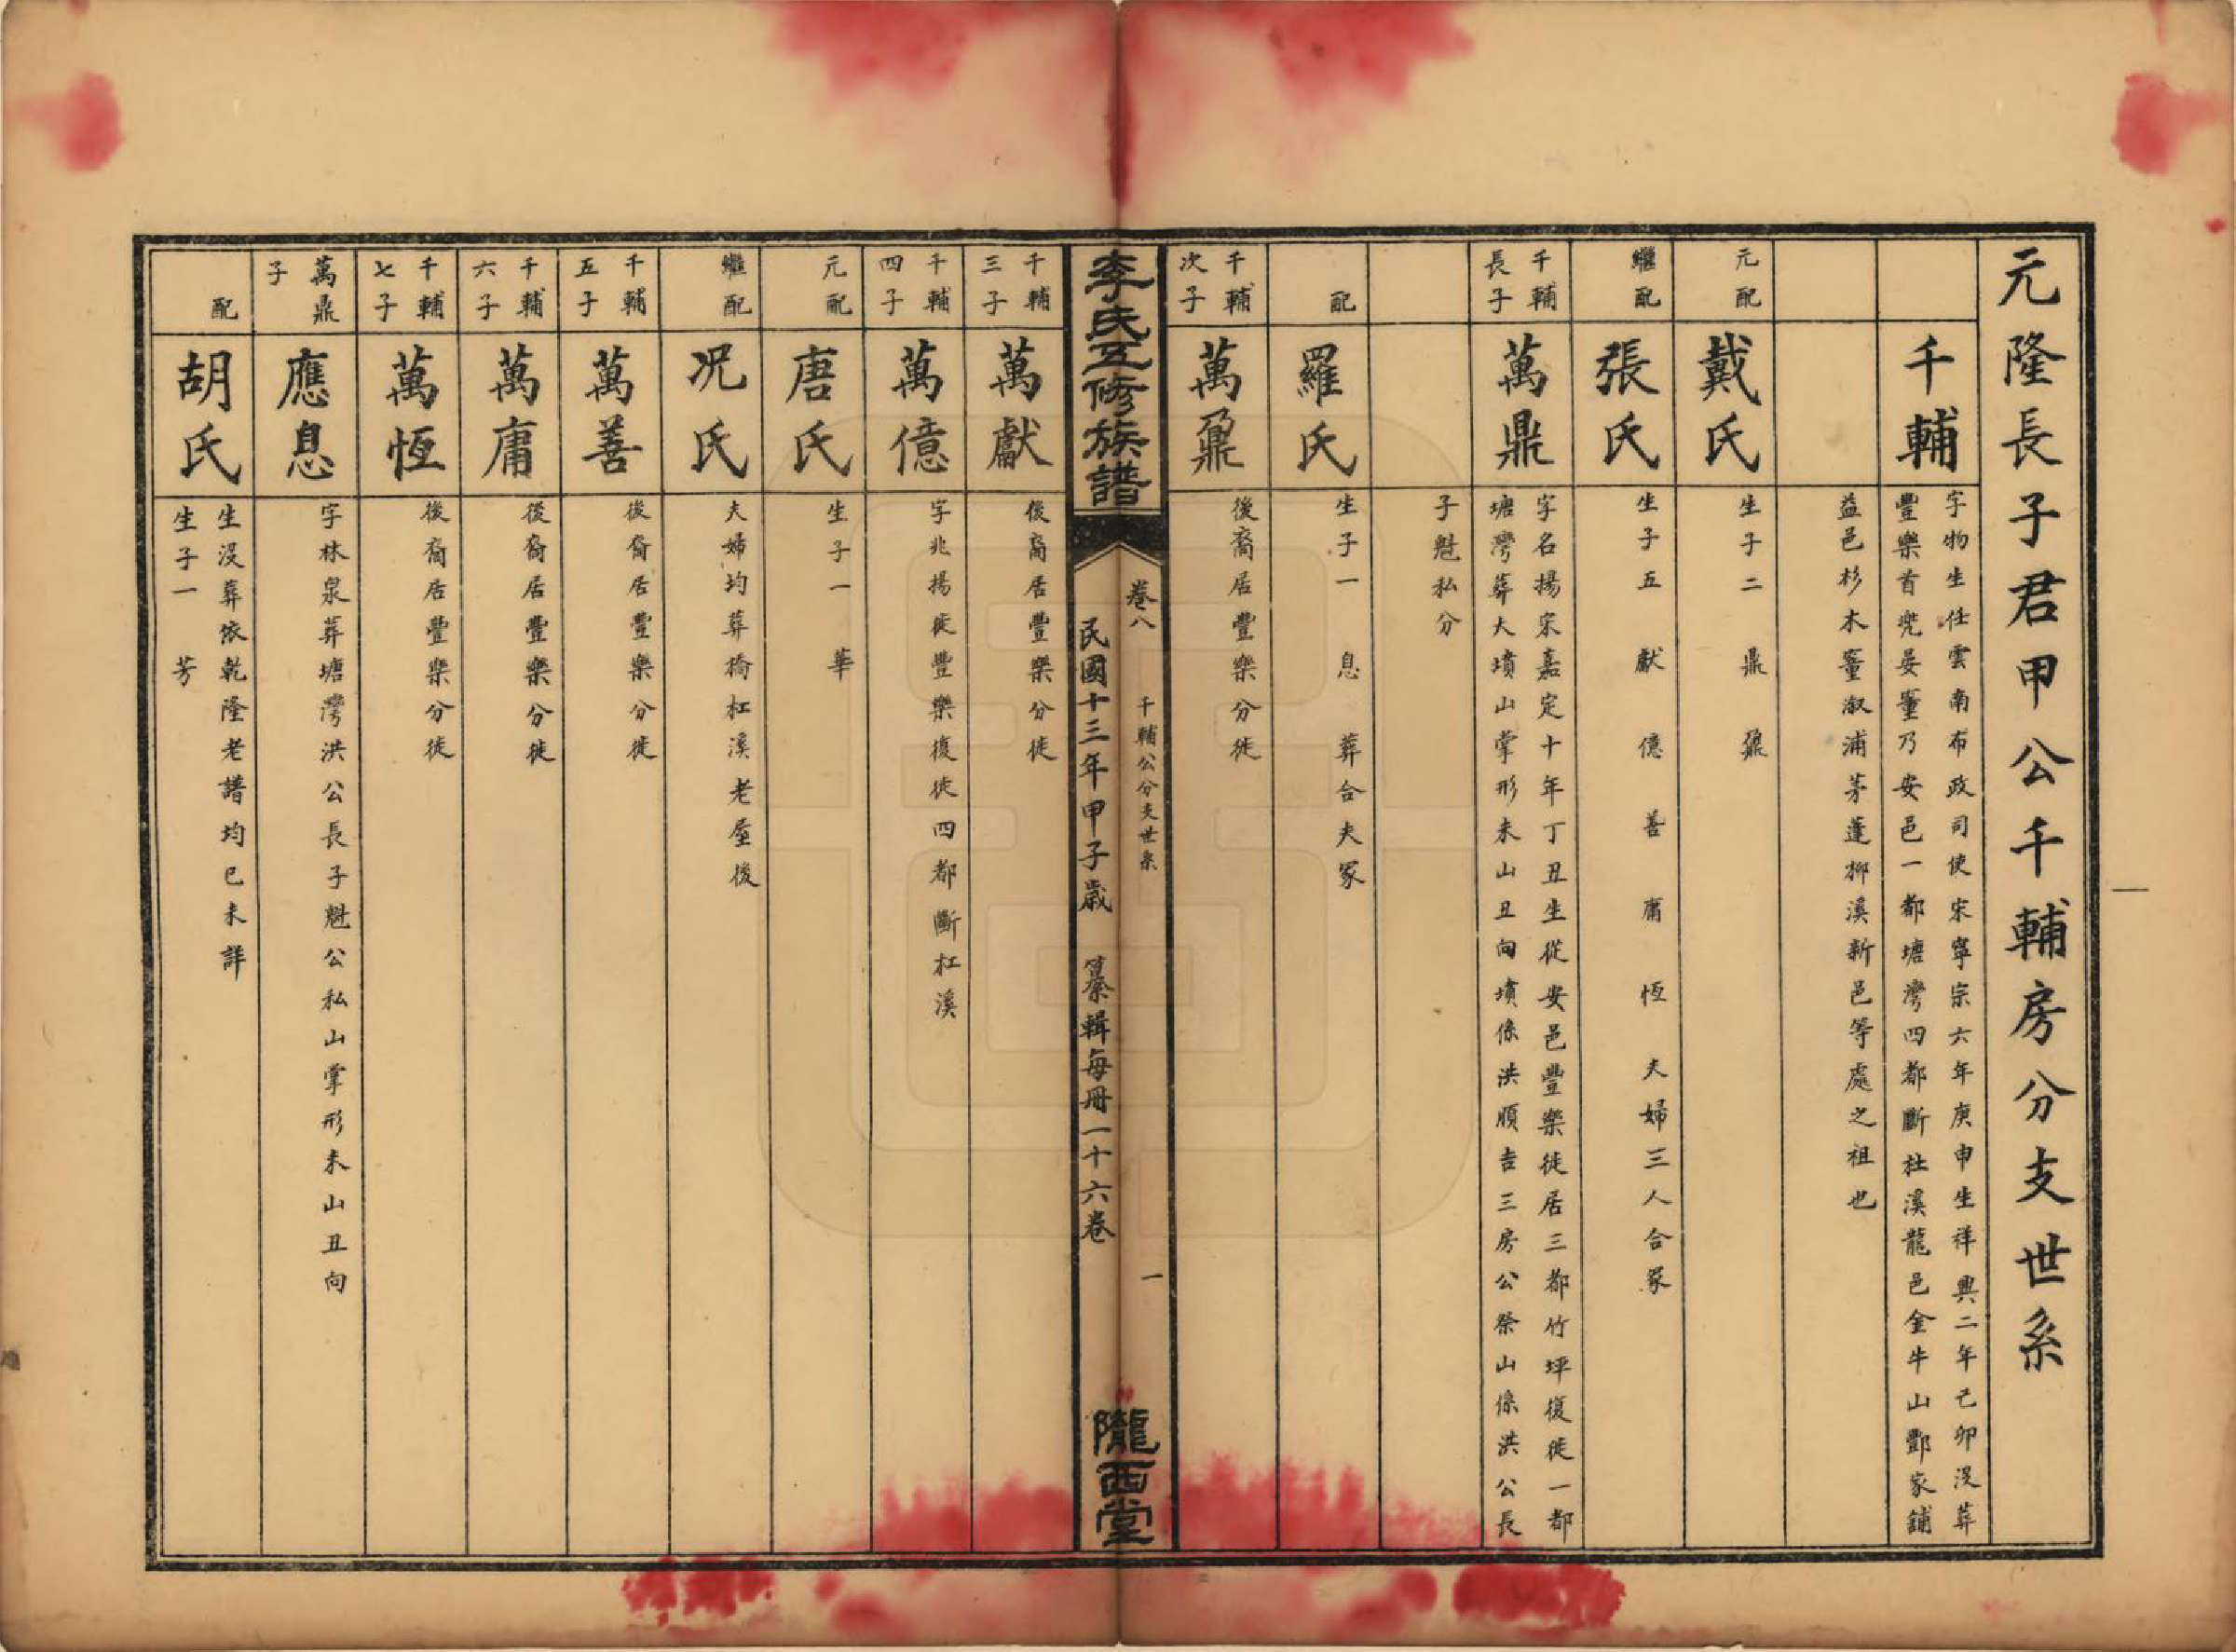 元隆長子君甲公千輔房分支世系
千輔
字物生任雲南布政司使宋寧宗六年庚申生祥興二年己卯沒葬
豐樂首兠晏董乃安邑一都塘灣四都斷杜溪龍邑金牛山鄷家鋪
益邑杉木蓳溆浦茅蓬柳溪新邑等處之祖也
元配
戴氏
生子二 鼎 鼐
繼配
張氏
生子五 獻 億 善 庸 恆 夫婦三人合冢
千輔
長子
萬鼎
字名揚宋嘉定十年丁丑生從安邑豐樂徒居三都竹坪復徙一都
塘灣葬大墳山掌形未山丑向墳係洪順吉三房公祭山係洪公長
子魁私分
配
羅氏
生子一 息 葬合夫冢
千輔
次子
萬鼐
後裔居豐樂分徙
李氏五修族譜
卷八
千輔公分支世系
一
民國十三年甲子歲 纂輯每冊一十六卷
隴西堂
千輔
三子
萬獻
後裔居豐樂分徙
千輔
四子
萬億
字兆揚徙豐樂復徙四都斷杠溪
元配
唐氏
生子一 華
繼配
况氏
夫婦均葬橋杠溪老屋後
千輔
五子
萬善
後裔居豐樂分徙
千輔
六子
萬庸
後裔居豐樂分徙
千輔
七子
萬恆
後裔居豐樂分徙
萬鼎
子
應息
字林泉葬塘灣洪公長子魁公私山掌形未山丑向
配
胡氏
生沒葬依乾隆老譜均已未詳
生子一 芳